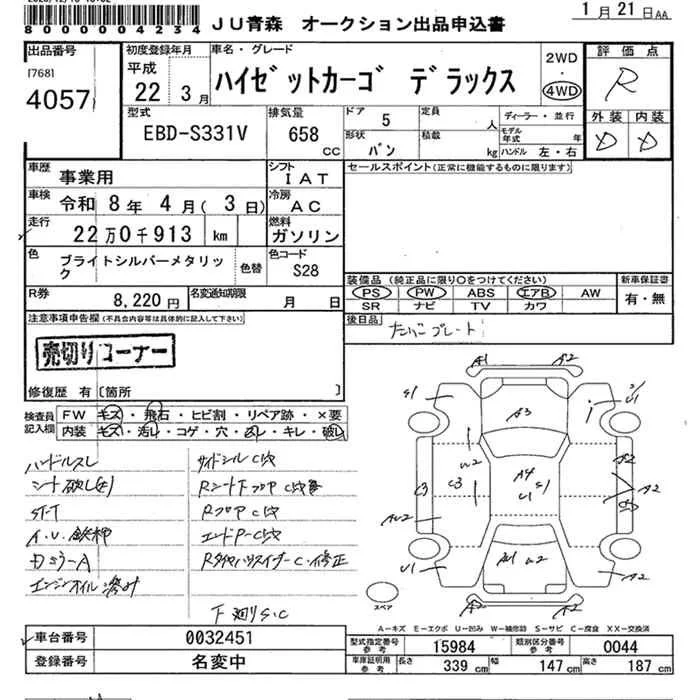 8000004234 JU青森 オークション出品申込書 1月21日AA
出品番号
[768]
4057
初度登録年月
平成
22 3月
車名・グレード
ハイゼットカーゴ デラックス
2WD
・
4WD
評価点
R
型式
EBD-S331V
排気量
658
CC
ドア 5
形状 バン
定員 人
積載 kg
ディーラー・並行
モデル年式 年
ハンドル 左・右
外装 内装
D D
車歴 事業用
シフト IAT
車検 令和 8年 4月( 3日)
冷房 AC
走行 22万0千913 km
燃料 ガソリン
色 ブライトシルバーメタリック
色替
色コード S28
R券 8,220円
名変通知期限 月 日
セールスポイント(正常に機能するものに限ります)
装備品 (純正品に限り○をつけてください)
PS PW ABS エアB AW
SR ナビ TV カワ
新車保証書
有・無
後日品
注意事項申告欄(不具合内容等は具体的に記入して下さい)
売切りコーナー
修復歴 有〔箇所 〕
検査員記入欄
FW キズ・飛石・ヒビ割・リペア跡・×要
内装 キズ・汚レ・コゲ・穴・凹レ・キレ・破レ
ハンドルスレ
シート破レ
ST-T
エンジンオイル滲み
サイドシルC穴
RシートドフロアC穴
RフロアC穴
エンドP-C穴
下廻りS.C
A1 A2
A3
A4
C3 C3
A2
スペア
A-キズ E-エクボ U-凹み W-補修跡 S-サビ C-腐食 XX-交換済
車台番号 0032451
登録番号 名変中
型式指定番号 参考 15984
類別区分番号 参考 0044
車庫証明用 参考 長さ 339cm 幅 147cm 高さ 187cm